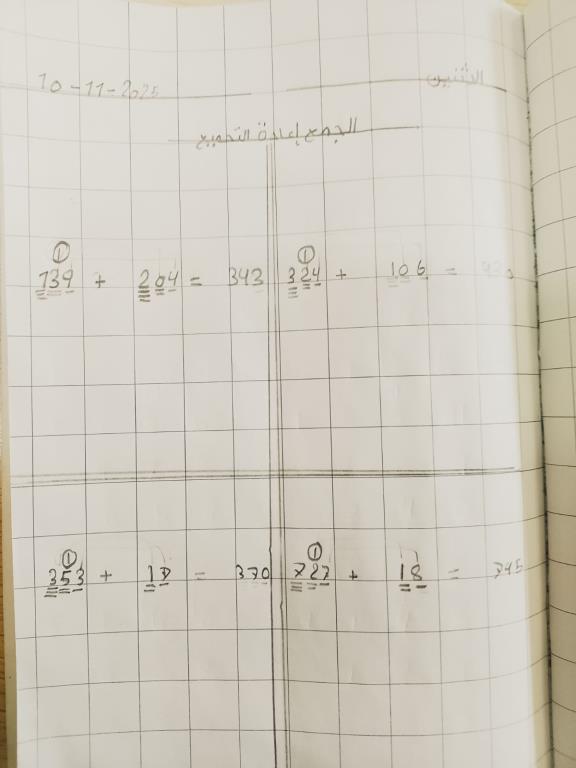 10-11-2025 الاثنين
الجمع إعادة التجميع
① ①
139 + 204 = 343 324 + 106 =
① ①
353 + 17 = 370 727 + 18 = 745